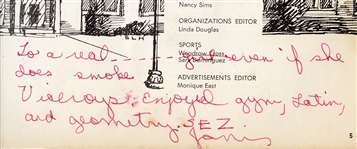 Nancy Sims
ORGANIZATIONS EDITOR
Linda Douglas
SPORTS
Woodrow Goss
Sara Dominguez
ADVERTISEMENTS EDITOR
Monique East
SLH
To a real _ _ _ _ _ girl even if she
does smoke
Viceroys. Enjoyed gym, Latin,
and geometry. EZ
Janis
5